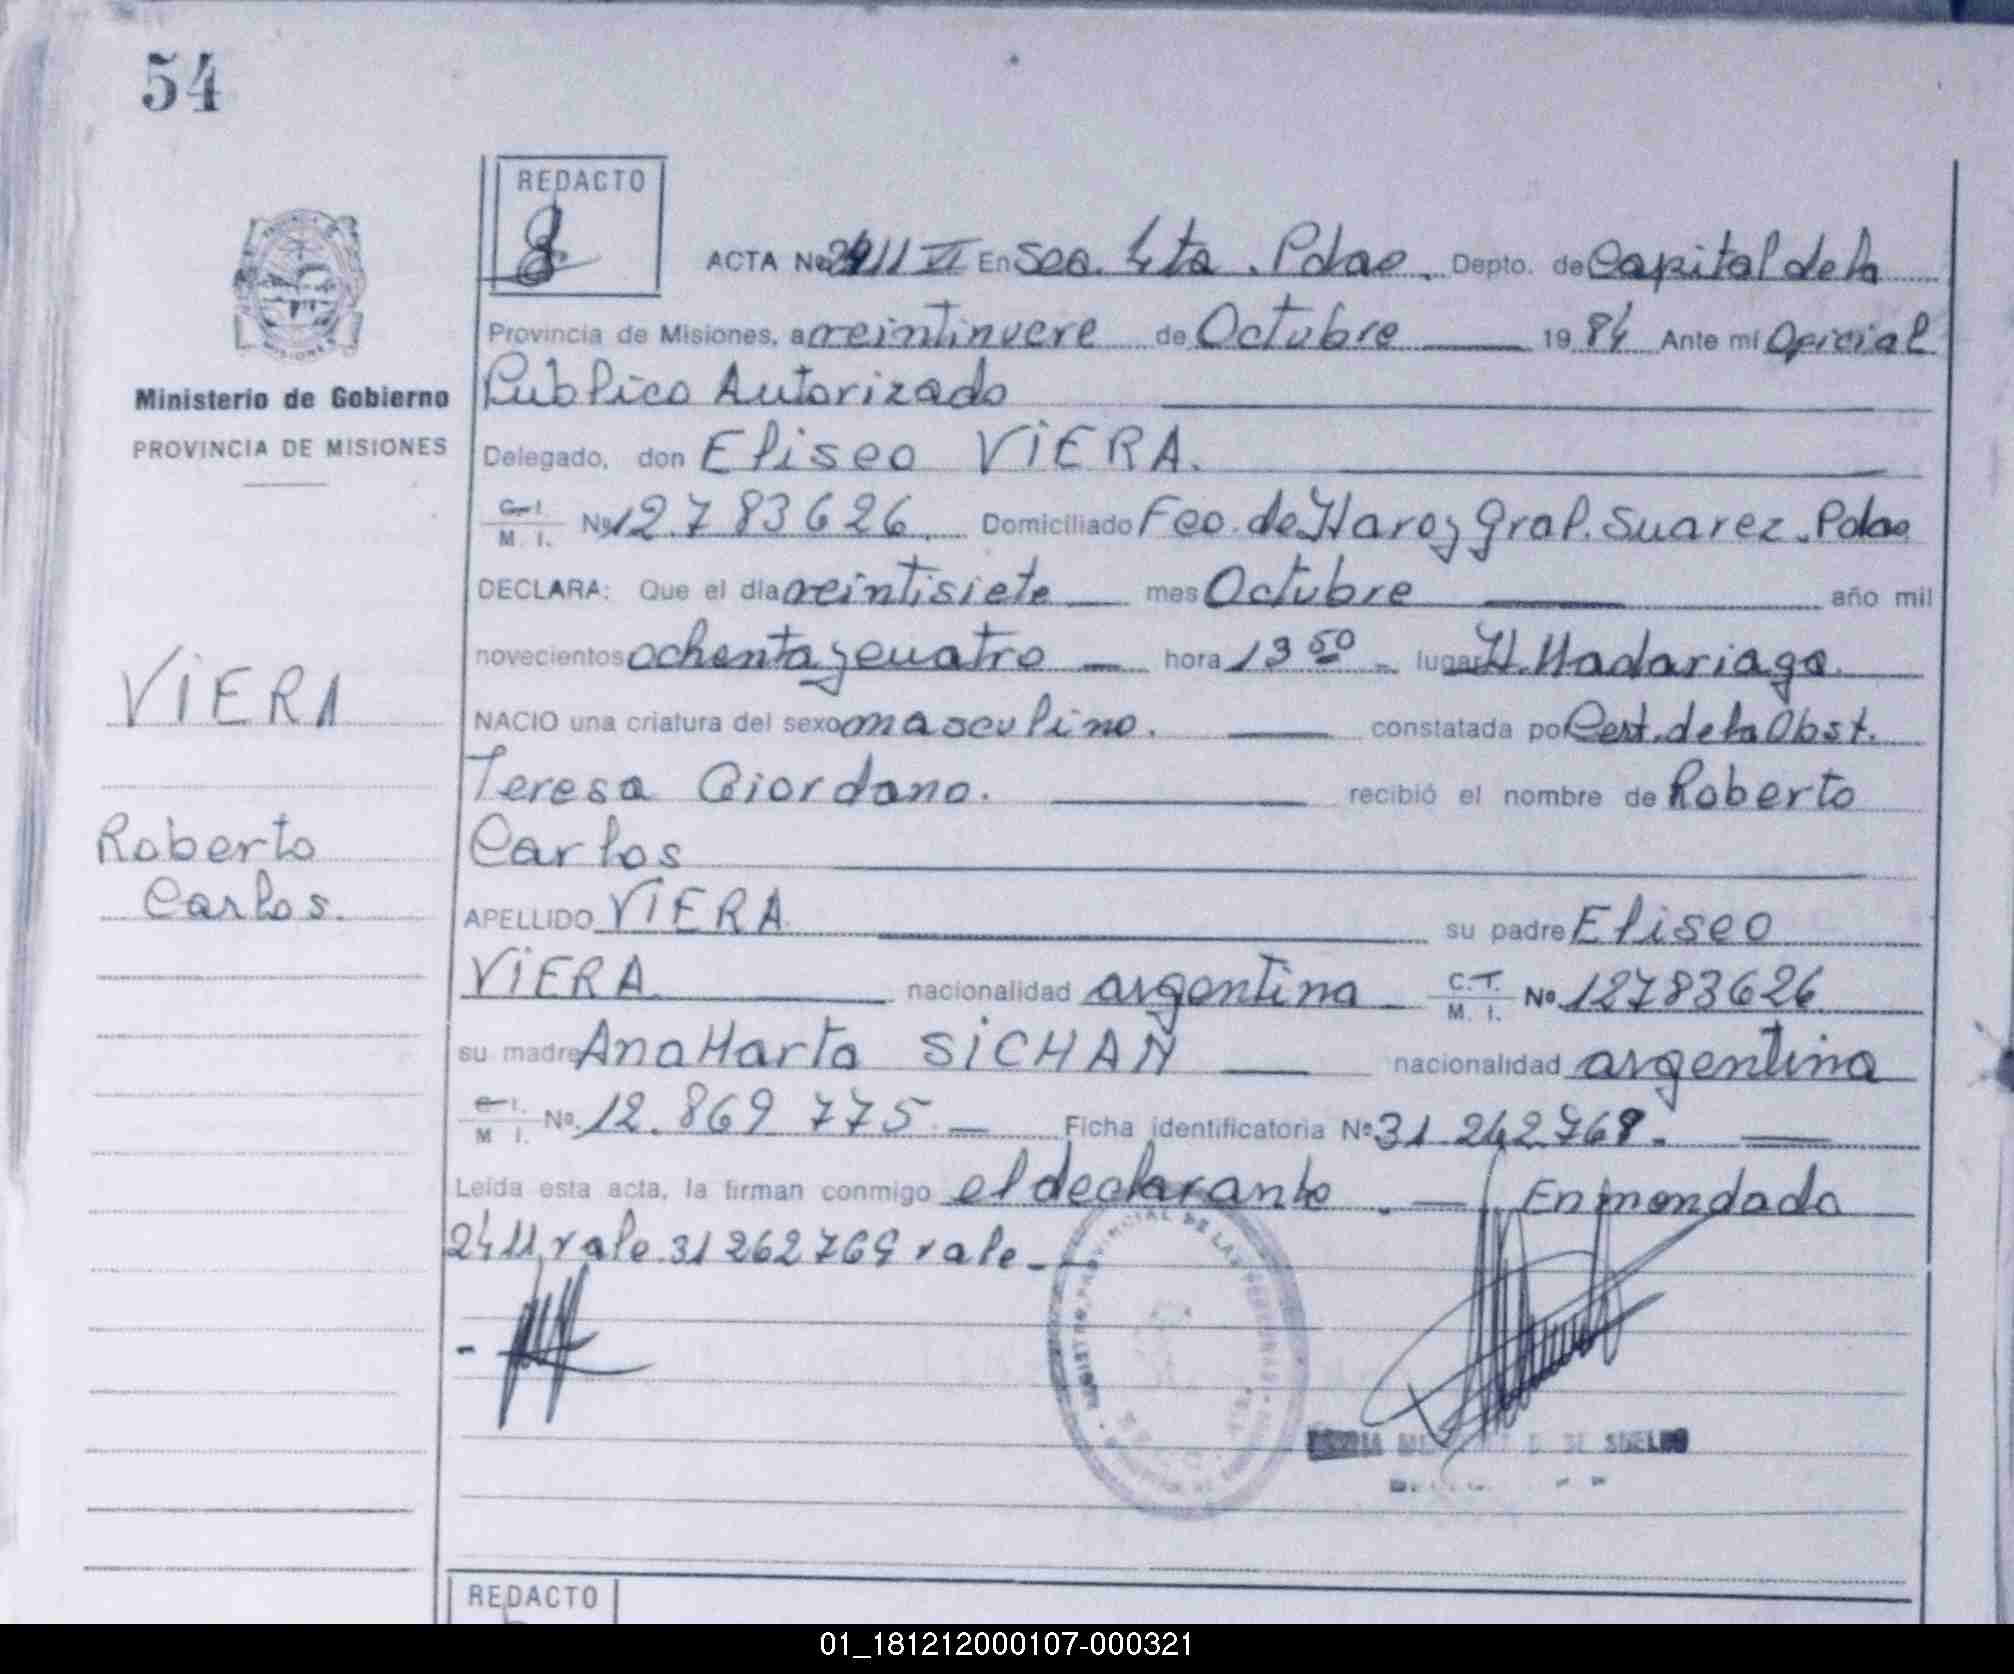 54
REDACTO
ACTA Nº 2411 VI En Sec. 4ta. Pdas. Depto. de Capital de la
Provincia de Misiones, a veintinueve de Octubre 1984 Ante mí Oficial
Ministerio de Gobierno
PROVINCIA DE MISIONES
Publico Autorizado
Delegado, don Eliseo VIERA.
C. I. M. I. Nº 12.783626. Domiciliado Fco. de Haro y Gral. Suarez. Pdas
DECLARA: Que el día veintisiete mes Octubre año mil
novecientos ochenta y cuatro hora 13 50 lugar H. Madariaga.
VIERA
NACIO una criatura del sexo masculino. constatada por Cert. de la Obst.
Teresa Giordano. recibió el nombre de Roberto
Roberto
Carlos.
Carlos
APELLIDO VIERA su padre Eliseo
VIERA nacionalidad argentina C.I. M. I. Nº 12783626
su madre Ana Marta SICHAÑ nacionalidad argentina
C. I. M I. Nº. 12.869 775. Ficha identificatoria Nº 31 262769.
Leída esta acta, la firman conmigo el declarante. Enmendado
2411 vale 31 262 769 vale.
PROVINCIAL DE LAS PERSONAS
DE SUELDO
REDACTO
01_181212000107-000321